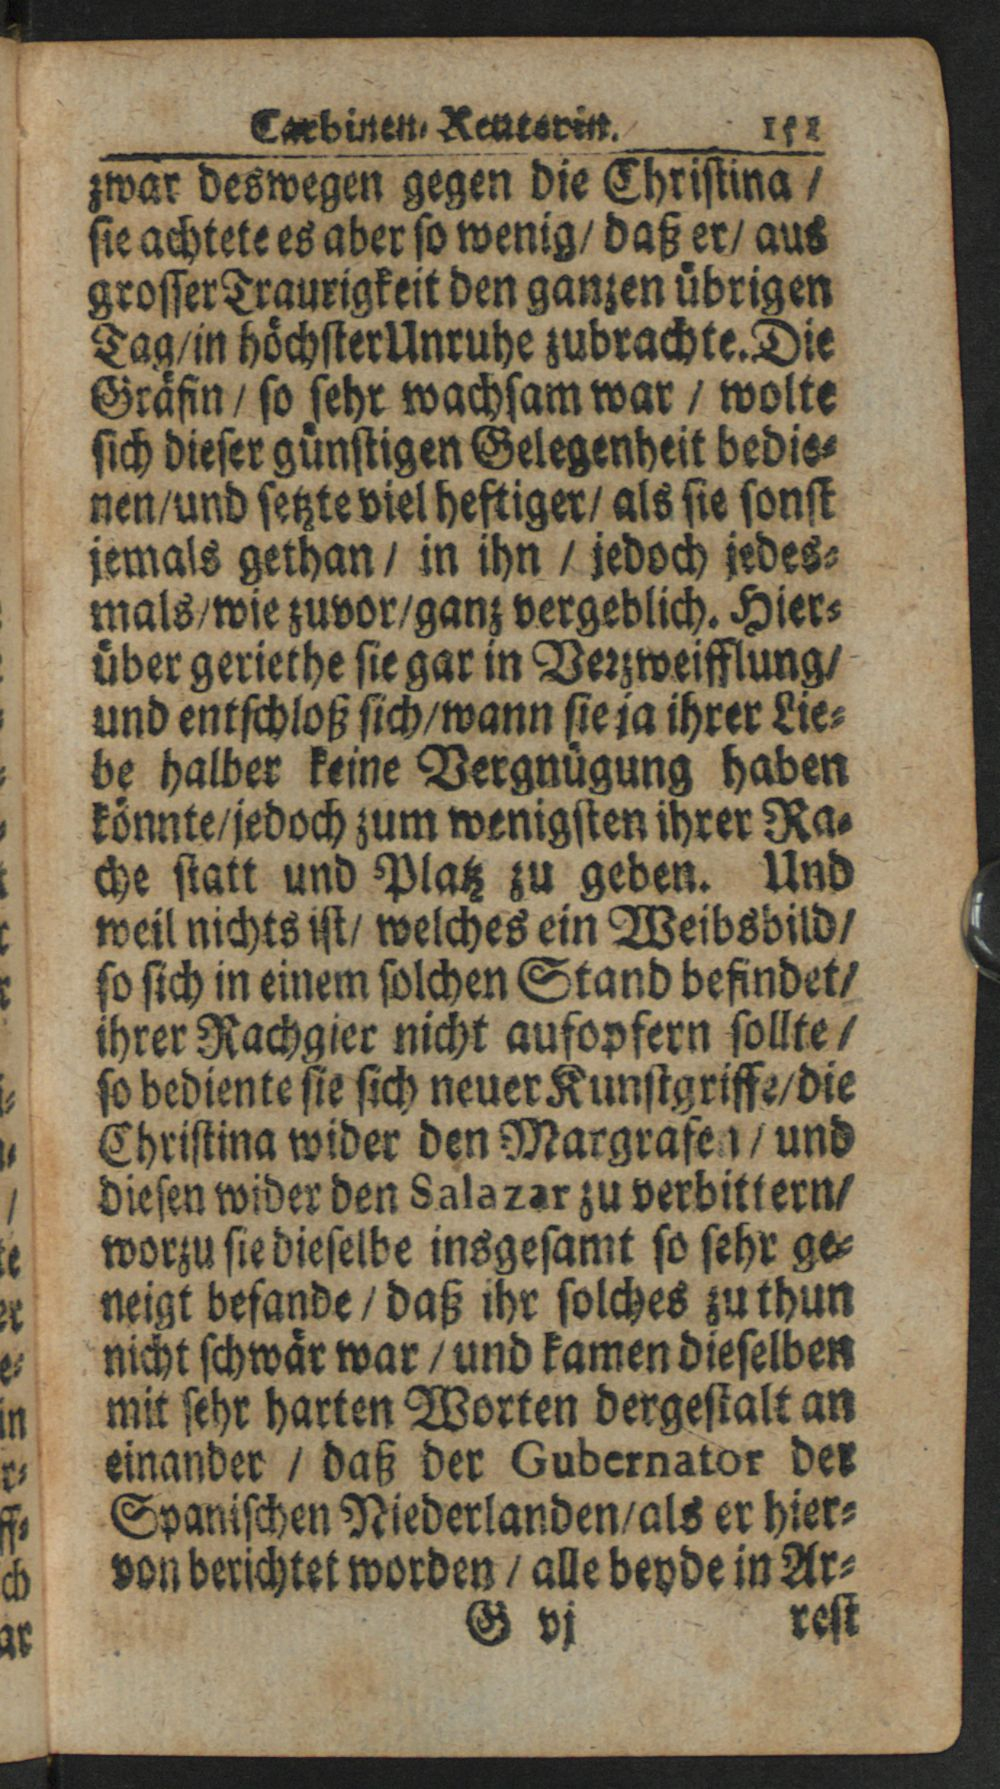 Carbinen-Reuterin. 151
zwar deswegen gegen die Christina /
sie achtete es aber so wenig/ daß er/ aus
grosser Traurigkeit den ganzen übrigen
Tag/in höchster Unruhe zubrachte. Die
Gräfin / so sehr wachsam war / wolte
sich dieser günstigen Gelegenheit bedie-
nen/und setzte viel heftiger/ als sie sonst
jemals gethan / in ihn / jedoch jedes-
mals/wie zuvor/ganz vergeblich. Hier-
über geriethe sie gar in Verzweifflung/
und entschloß sich/wann sie ja ihrer Lie-
be halber keine Vergnügung haben
könnte/jedoch zum wenigsten ihrer Ra-
che statt und Platz zu geben. Und
weil nichts ist/ welches ein Weibsbild/
so sich in einem solchen Stand befindet/
ihrer Rachgier nicht aufopfern sollte /
so bediente sie sich neuer Kunstgriffe/die
Christina wider den Margrafen / und
diesen wider den Salazar zu verbittern/
worzu sie dieselbe insgesamt so sehr ge-
neigt befande / daß ihr solches zu thun
nicht schwär war / und kamen dieselben
mit sehr harten Worten dergestalt an
einander / daß der Gubernator der
Spanischen Niederlanden/als er hier-
von berichtet worden / alle beyde in Ar-
G vj rest